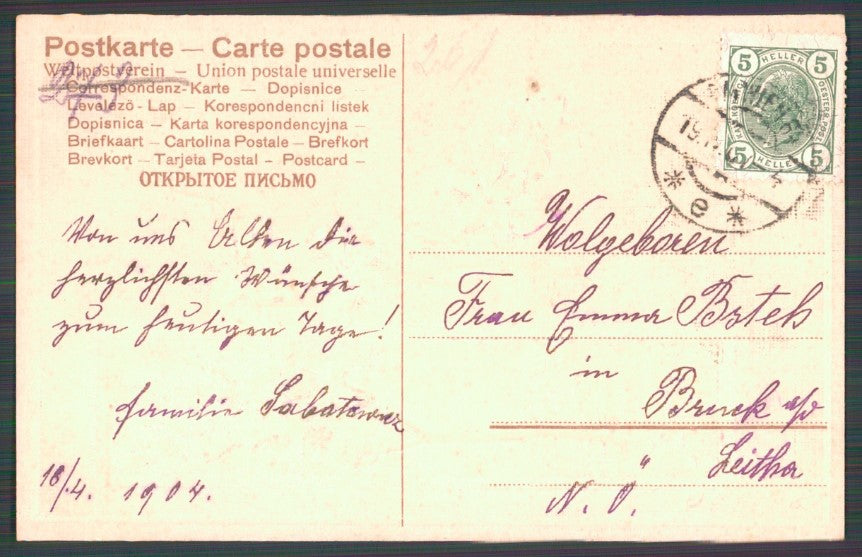 Postkarte — Carte postale
Weltpostverein — Union postale universelle
Correspondenz-Karte — Dopisnice
Levelező - Lap — Korespondencni listek
Dopisnica — Karta korespondencyjna —
Briefkaart — Cartolina Postale — Brefkort
Brevkort — Tarjeta Postal - Postcard —
ОТКРЫТОЕ ПИСЬМО
Von uns Allen die
herzlichsten Wünsche
zum heutigen Tage!
Familie
18/4. 1904.
261
5 HELLER 5
5 HELLER 5
19.
e
Wolgeboren
Frau Emma
in
Bruck a/d
Leitha
N. Ö.